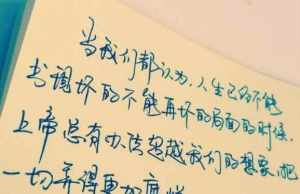 当我们都认为,人生已经不能
书调坏的不能再坏的局面的时候.
上帝总有办法超越我们的想象,把
一切弄得更加糜烂